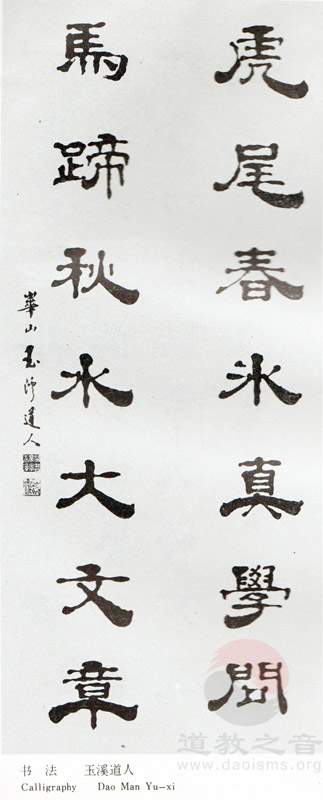 虎尾春氷真學問
馬蹄秋水大文章
華山玉溪道人
道教之音
www.daoisms.org
书 法 玉溪道人
Calligraphy Dao Man Yu-xi